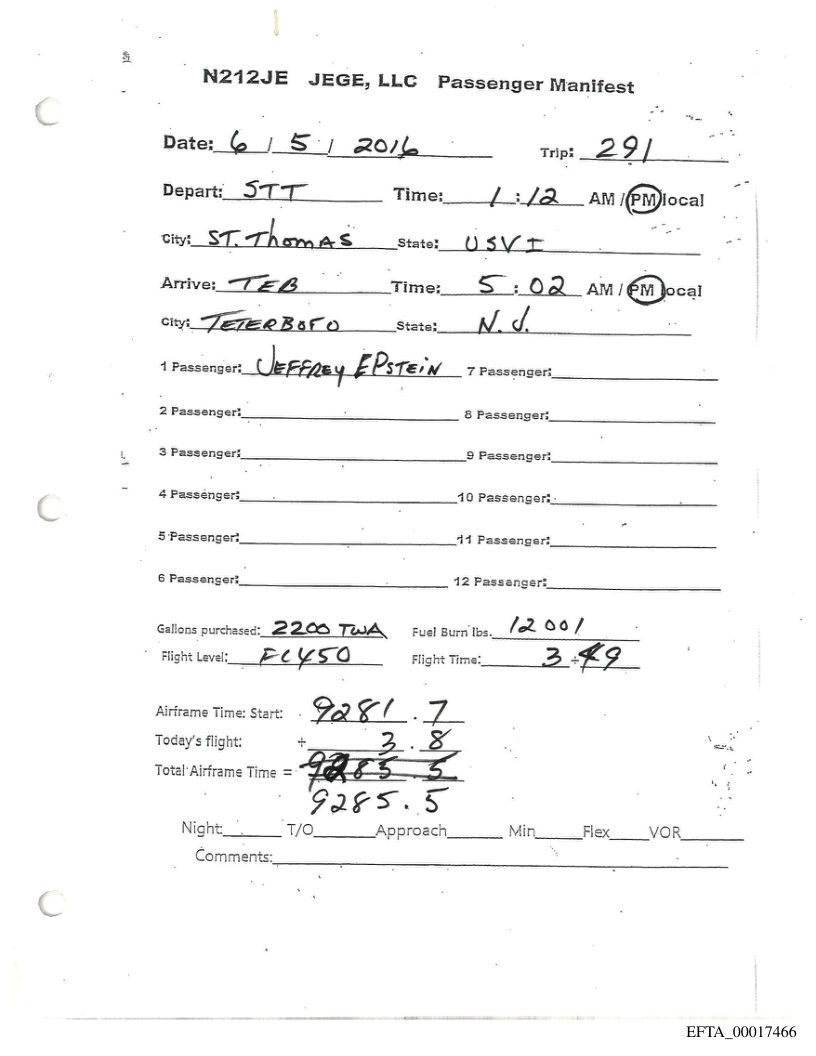 N212JE JEGE, LLC Passenger Manifest
Date: 6 / 5 / 2016 Trip: 291
Depart: STT Time: 1 : 12 AM / PM local
City: ST. Thomas State: USVI
Arrive: TEB Time: 5 : 02 AM / PM local
City: TETERBORO State: N.J.
1 Passenger: JEFFREY EPSTEIN 7 Passenger:
2 Passenger: 8 Passenger:
3 Passenger: 9 Passenger:
4 Passenger: 10 Passenger:
5 Passenger: 11 Passenger:
6 Passenger: 12 Passenger:
Gallons purchased: 2200 TWA Fuel Burn lbs. 12001
Flight Level: FL450 Flight Time: 3 + 49
Airframe Time: Start: 9281 . 7
Today's flight: + 3 . 8
Total Airframe Time = 9285 5
9285 . 5
Night: T/O Approach Min Flex VOR
Comments:
EFTA_00017466